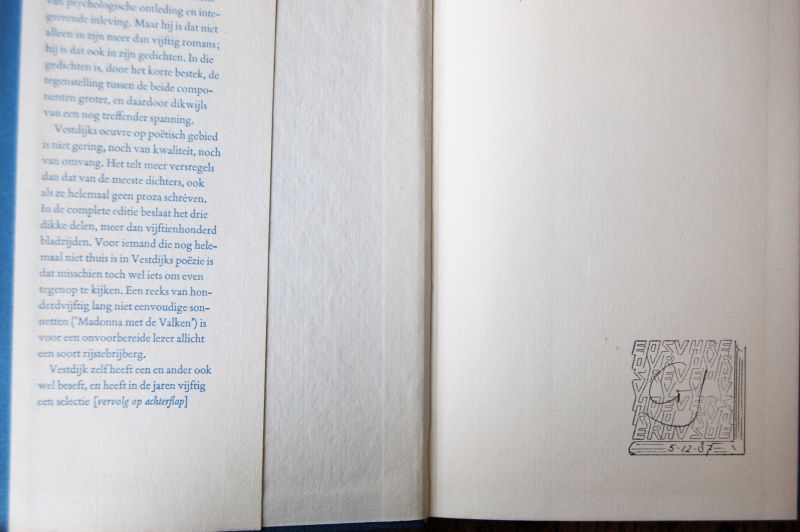 van psychologische ontleding en inte-
grerende inleving. Maar hij is dat niet
alleen in zijn meer dan vijftig romans;
hij is dat ook in zijn gedichten. In die
gedichten is, door het korte bestek, de
tegenstelling tussen de beide compo-
nenten groter, en daardoor dikwijls
van een nog treffender spanning.
Vestdijks oeuvre op poëtisch gebied
is niet gering, noch van kwaliteit, noch
van omvang. Het telt meer versregels
dan dat van de meeste dichters, ook
als ze helemaal geen proza schréven.
In de complete editie beslaat het drie
dikke delen, meer dan vijftienhonderd
bladzijden. Voor iemand die nog hele-
maal niet thuis is in Vestdijks poëzie is
dat misschien toch wel iets om even
tegenop te kijken. Een reeks van hon-
derdvijftig lang niet eenvoudige son-
netten ('Madonna met de Valken') is
voor een onvoorbereide lezer allicht
een soort rijstebrijberg.
Vestdijk zelf heeft een en ander ook
wel beseft, en heeft in de jaren vijftig
een selectie [vervolg op achterflap]
5-12-87